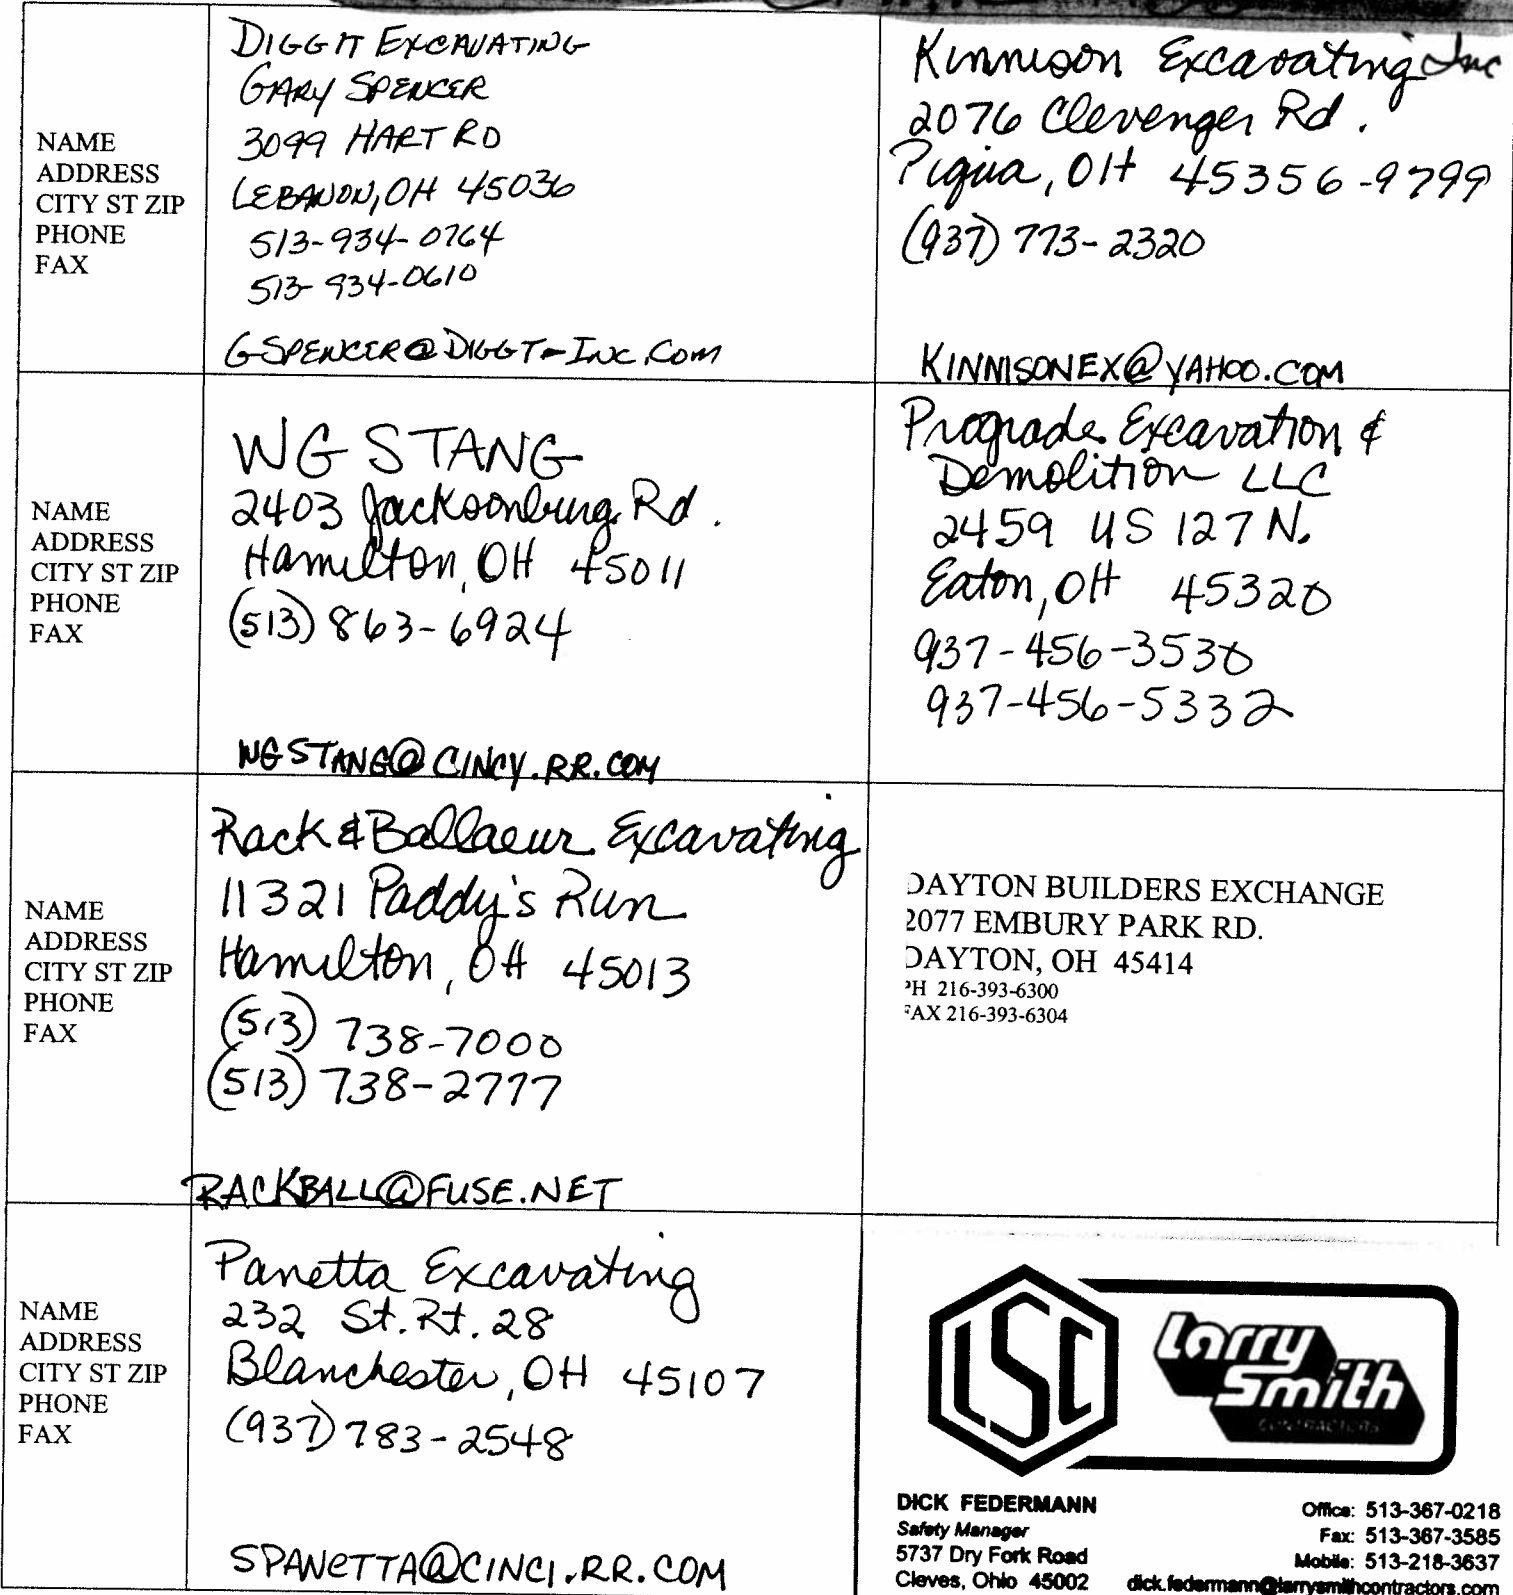 NAME
ADDRESS
CITY ST ZIP
PHONE
FAX
DIGGIT EXCAVATING
GARY SPENCER
3099 HART RD
LEBANON, OH 45036
513-934-0764
513-934-0610
GSPENCER@DIGGT-INC.COM
Kinnison Excavating Inc
2076 Clevenger Rd.
Piqua, OH 45356-9799
(937) 773-2320
KINNISONEX@YAHOO.COM
NAME
ADDRESS
CITY ST ZIP
PHONE
FAX
WG STANG
2403 Jacksonburg Rd.
Hamilton, OH 45011
(513) 863-6924
WGSTANG@CINCY.RR.COM
Prograde Excavation &
Demolition LLC
2459 US 127 N.
Eaton, OH 45320
937-456-3530
937-456-5332
NAME
ADDRESS
CITY ST ZIP
PHONE
FAX
Rack & Ballauer Excavating
11321 Paddy's Run
Hamilton, OH 45013
(513) 738-7000
(513) 738-2777
RACKBALL@FUSE.NET
DAYTON BUILDERS EXCHANGE
2077 EMBURY PARK RD.
DAYTON, OH 45414
PH 216-393-6300
FAX 216-393-6304
NAME
ADDRESS
CITY ST ZIP
PHONE
FAX
Panetta Excavating
232 St. Rt. 28
Blanchester, OH 45107
(937) 783-2548
SPANETTA@CINCI.RR.COM
LSC
Larry
Smith
CONTRACTORS
DICK FEDERMANN
Safety Manager
5737 Dry Fork Road
Cleves, Ohio 45002
Office: 513-367-0218
Fax: 513-367-3585
Mobile: 513-218-3637
dick.federmann@larrysmithcontractors.com